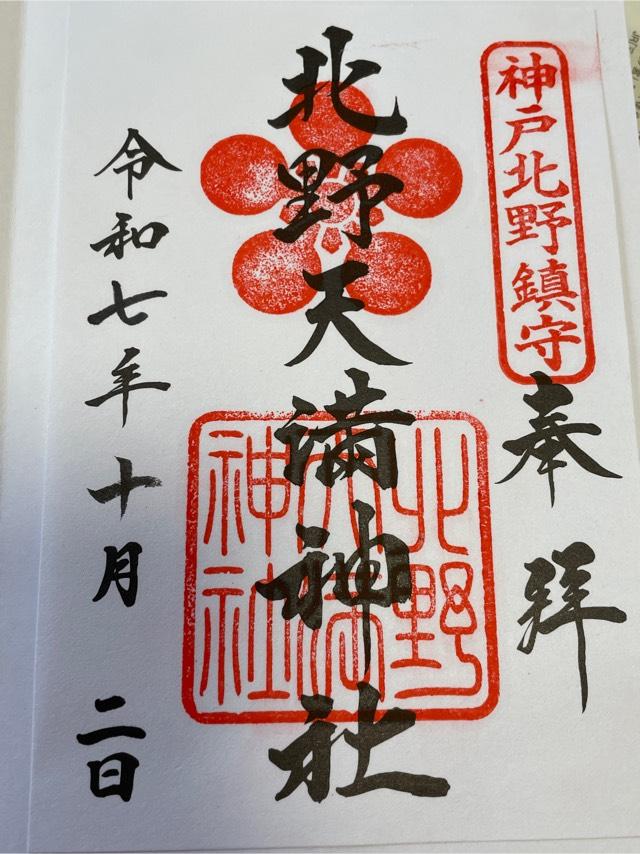 神戸北野鎮守
奉拝
北野天満神社
北野
天満
神社
令和七年十月二日